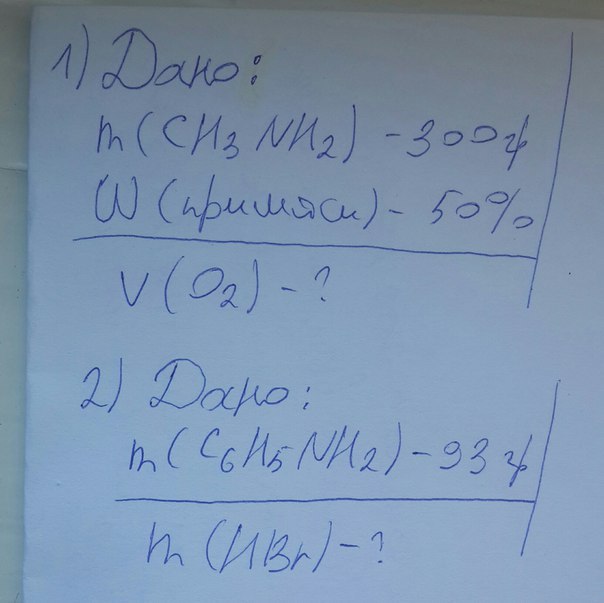 1) Дано:
m(CH3NH2) - 300гр
W(примяси) - 50%
V(O2) - ?
2) Дано:
m(C6H5NH2) - 93 гр
m(HBr) - ?